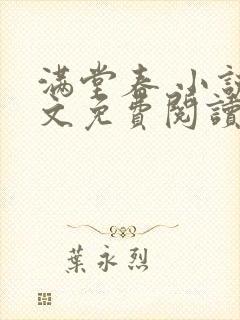 满堂春 小說
文免費閱讀
葉永烈